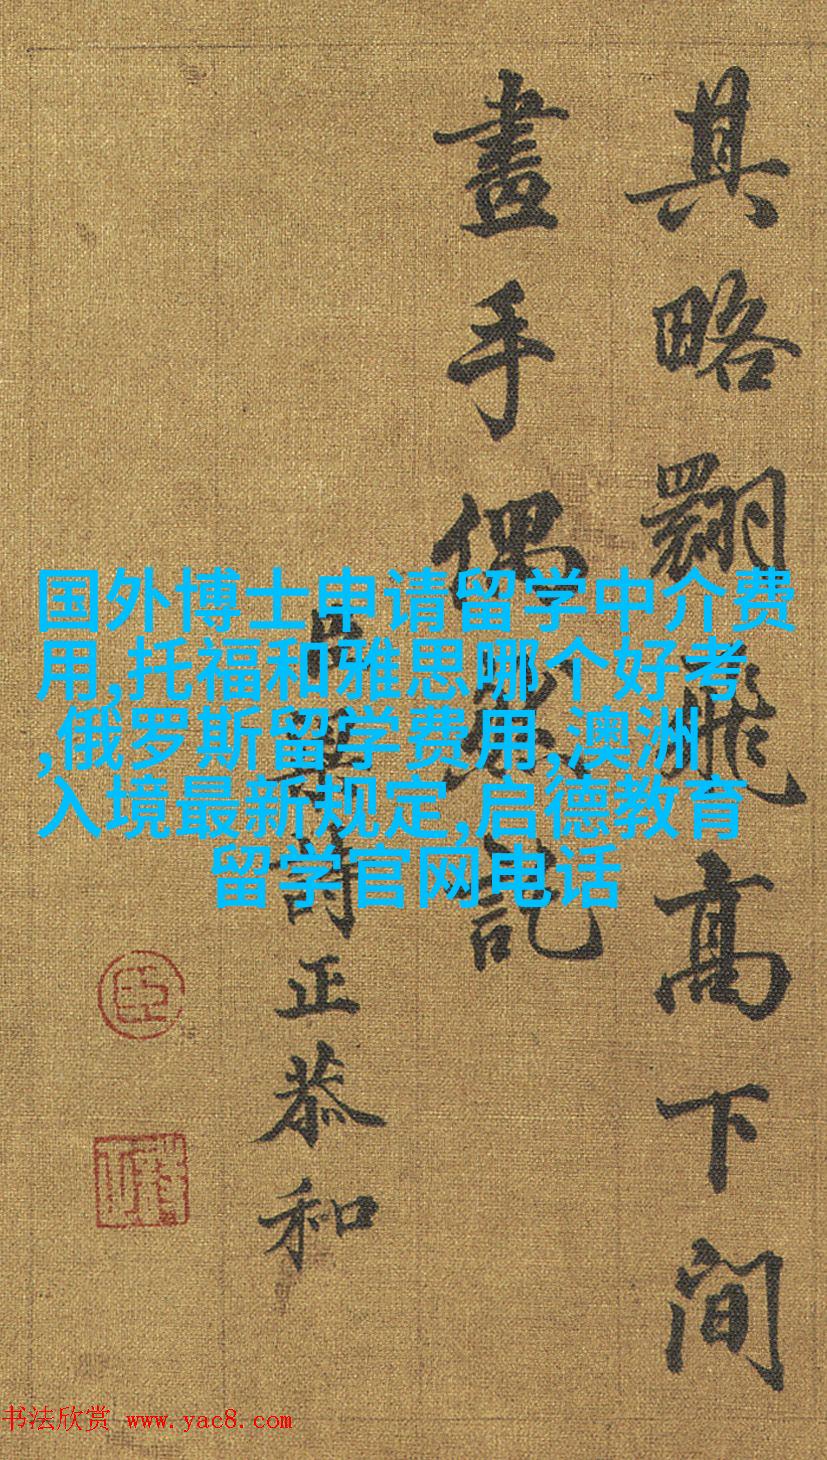 其略翾飛高下間
畫手偶然記
臣梁詩正恭和
臣
国外博士申请留学中介费
用,托福和雅思哪个好考
,俄罗斯留学费用,澳洲
入境最新规定,启德教育
留学官网电话
书法欣赏 www.yac8.com